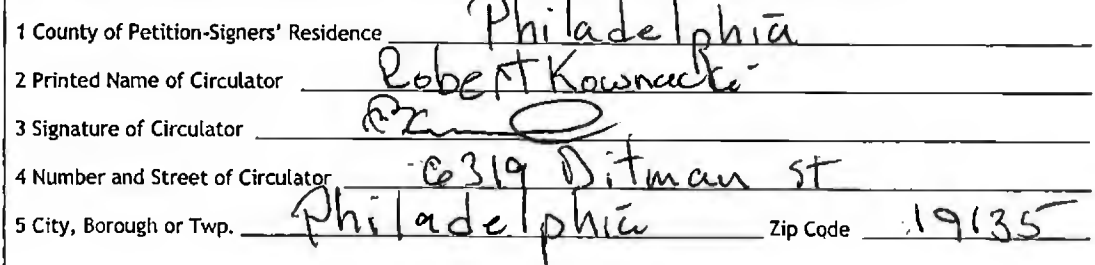 1 County of Petition-Signers' Residence Philadelphia
2 Printed Name of Circulator Robert Kownacki
3 Signature of Circulator
4 Number and Street of Circulator 6319 Ditman St
5 City, Borough or Twp. Philadelphia Zip Code 19135